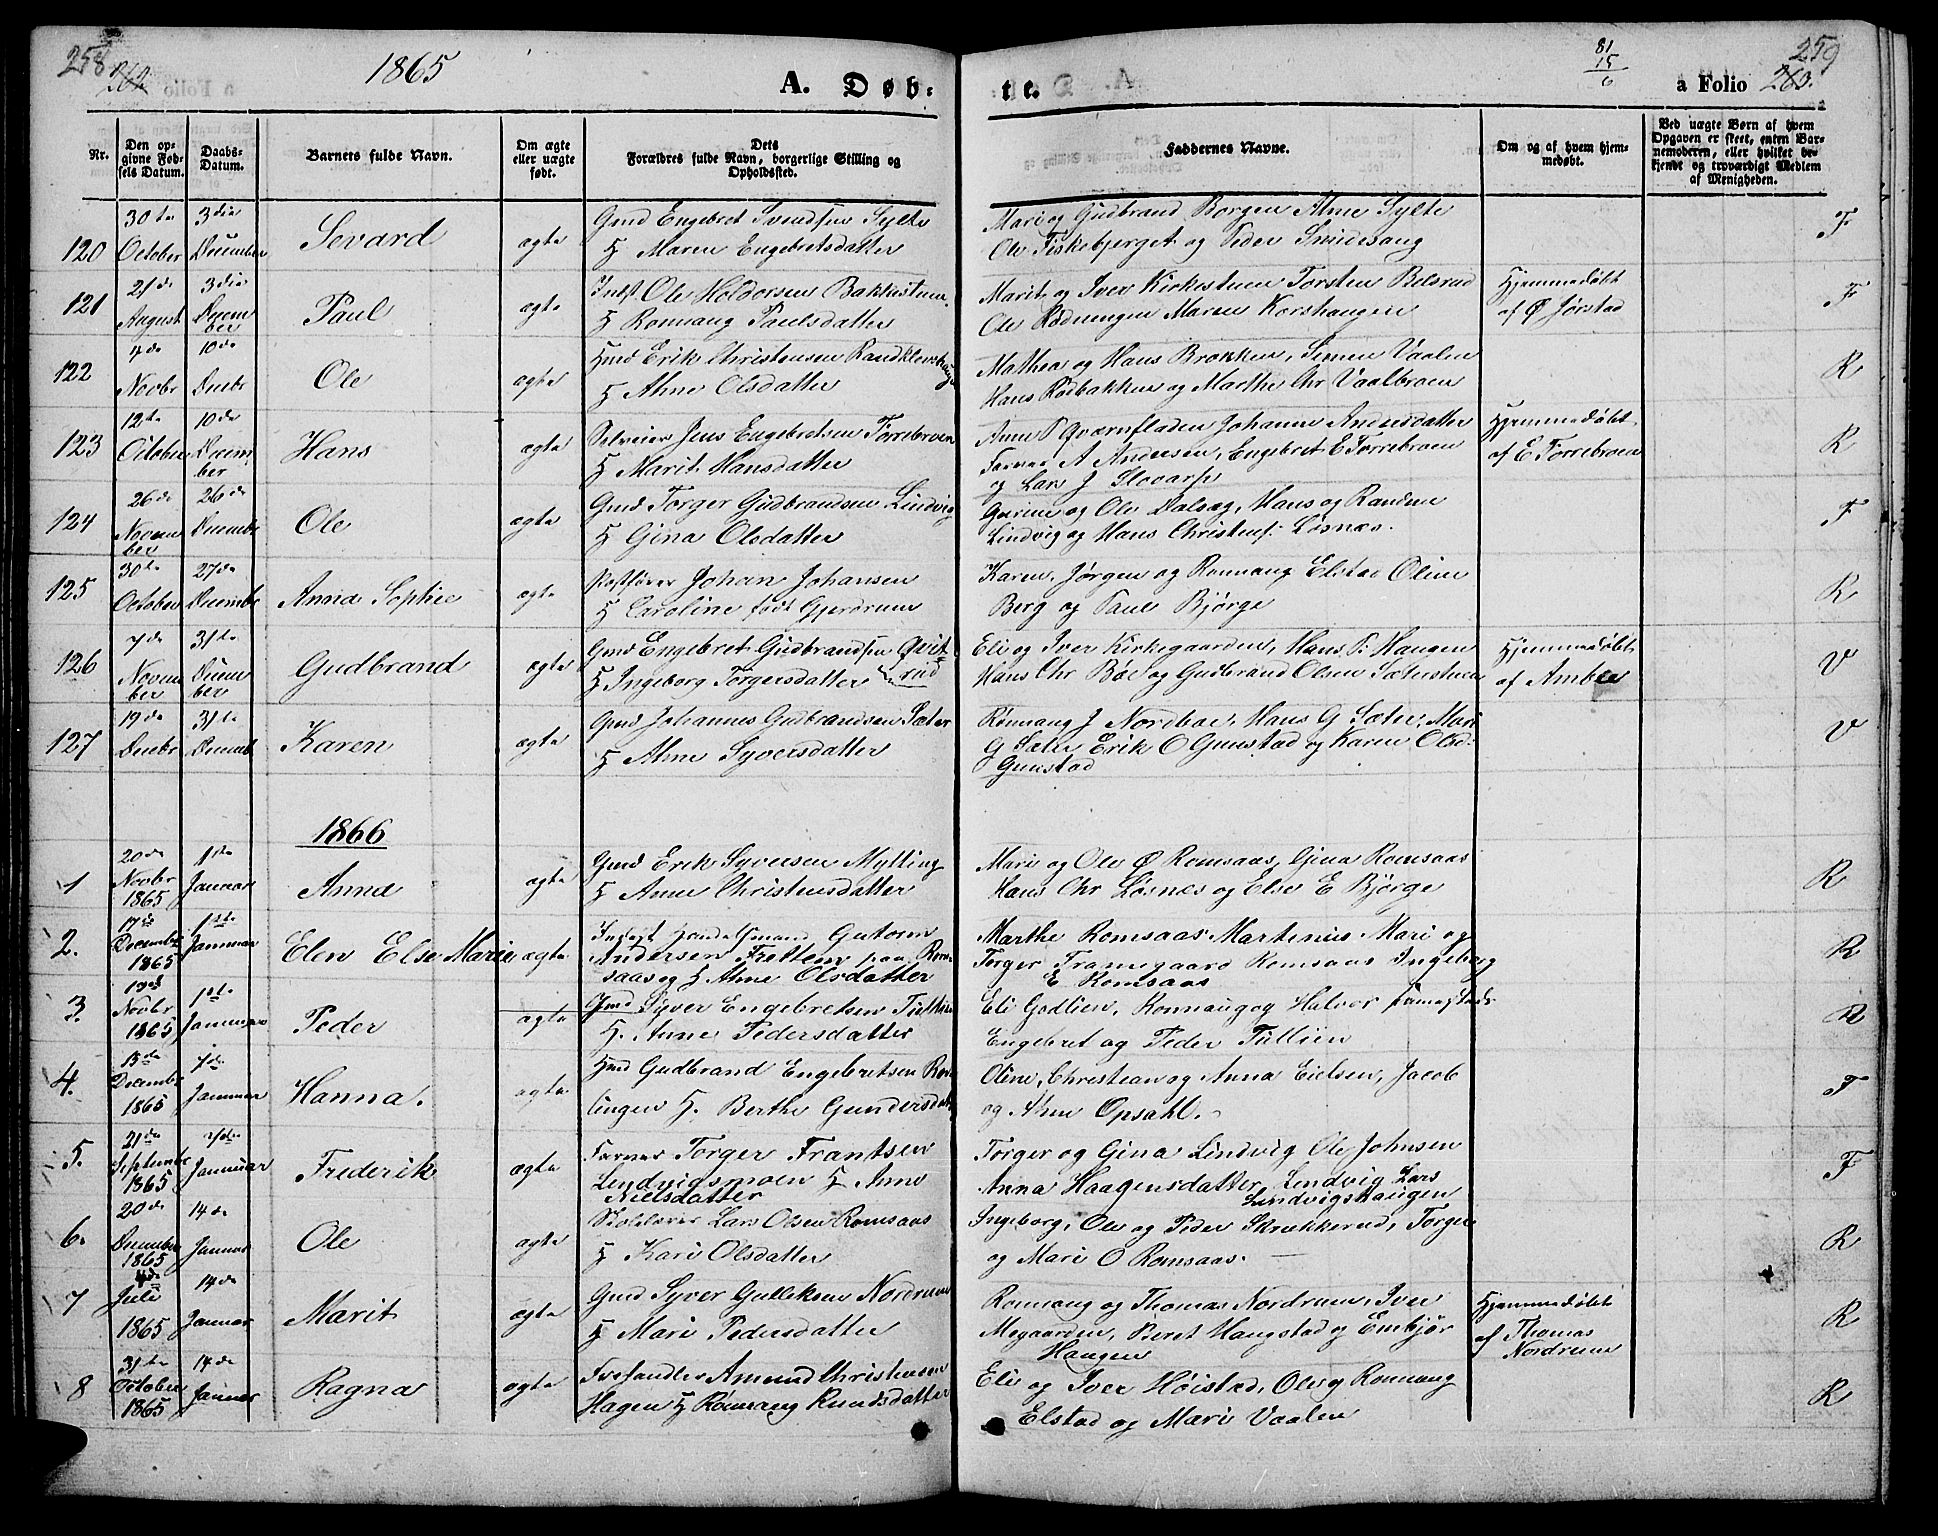 258
262
1865
A. Døb-
te.
81
15
6
259
a Folio 263.
Nr.
Den op-
givne Fød-
sels Datum.
Daabs-
Datum.
Barnets fulde Navn.
Om ægte
eller uægte
født.
Dets
Forældres fulde Navn, borgerlige Stilling og
Opholdssted.
Faddernes Navne.
Om og af hvem hjem-
medøbt.
Ved uægte Børn af hvem
Opgaven er skeet, enten Bar-
nemoderen, eller hvilket be-
kjendt og troværdigt Medlem
af Menigheden.
120
30te
October
3die
December
Sevard
ægte
Gmd Engebret Svendsen Sylte
H Maren Engebretsdatter
Mari og Gudbrand Borgen Ahne Sylte
Ole Fiskebjerget og Peder Smidesang
F
121
21de
August
3die
Decem
ber
Paul
ægte
Indst Ole Holdorsen Bakkestuen
H Ronnaug Paulsdatter
Marit og Iver Kirkestuen Torsten Belsrud
Ole Rødningen Maren Korshaugen
Hjemmedøbt
af Ø Jørstad
F
122
4de
Novbr
10de
Decbr
Ole
ægte
Hmd Erik Christensen Randklevshaugen
H Ahne Olsdatter
Mathea og Hans Brokken, Simen Vaalen
Hans Rødbakken og Marthe Chr Vaalbroen
R
123
12te
October
10de
Decem
ber
Hans
ægte
Selveier Jens Engebretsen Forrebroen
H Marit Hansdatter
Anne P Qværnfladen Johanne Andersdatter
Farver A Andersen, Engebret E Forrebroen
og Lars J
Hjemmedøbt
af E Forrebroen
R
124
26de
Novem
ber
26de
Decembr
Ole
ægte
Gmd Torger Gudbrandsen Lindvig
H Gina Olsdatter
Gurine og Ole Dalseg, Hans og Randine
Lindvig og Hans Christens: Løsnæs.
F
125
30te
October
27de
Decembr
Anna Sophie
ægte
Postfører Johan Johansen
H Caroline født Gjerdrum
Karen, Jørgen og Ronnaug Elstad Oline
Berg og Paul Bjørge
R
126
7de
Novem
ber
31te
Decem
ber
Gudbrand
ægte
Gmd Engebret Gudbrandsen Qvit-
H Ingeborg Torgersdatter rud
Eli og Iver Kirkegaarden, Hans P. Haugen
Hans Chr Bøe og Gudbrand Olsen Sæterstuen
Hjemmedøbt
af Ambee
V
127
19de
Decbr
31te
Decemb
Karen
ægte
Gmd Johannes Gudbrandsen Sæter
H Ahne Syversdatter
Rønnaug J Nordboe, Hans G Sæter, Mari
G Sæter Erik O Gunstad og Karen Olsd:
Gunstad
V
1866
1
20de
Novbr
1865
1ste
Januar
Anna
ægte
Gmd Erik Syversen Mytting
H Anne Christensdatter
Mari og Ole Ø Romsaas, Gina Romsaas
Hans Chr Løsnæs og Else E Bjørge
R
2.
17de
Decembr
1865
1ste
Januar
Elen Else Marie
ægte
Inderst Handelsmand Gutorm
Andersen Fretten paa Rom-
saaseg H Ahne Olsdatter
Marthe Romsaas Martinius Mari og
Torger Framegaard Romsaas Ingeborg
E Romsaas
R
3.
Novbr
1865
1ste
Januar
Peder
ægte
Gmd Syver Engebretsen Tullien
H. Anne Pedersdatter
Eli Godlien, Ronnaug og Halvor
Engebret og Peder Tullien
R
4.
15de
Decembr
1865
7de
Januar
Hanna.
ægte
Hmd Gudbrand Engebretsen Rol-
lingen H. Berthe Gundersdatt
Oline, Christian og Anna Eielsen, Jacob
og Ahne Opsahl.
F
5.
21de
Septembr
1865
7de
Januar
Frederik
ægte
Farver Torger Frantsen
Lindvigsmoen H Anne
Nielsdatter
Torger og Gina Lindvig Ole Johnsen
Anna Haagensdatter Lindvig Lars
Lindvigshaugen
F
6.
20de
December
1865
14de
Januar
Ole
ægte
Skolelærer Lars Olsen Romsaas
H Kari Olsdatter
Ingeborg, Ole og Peder Skrækkerud, Torger
og Mari O Romsaas.
R
7
4de
Juli
1865
14de
Januar
Marit
ægte
Gmd Syver Gulliksen Nordrum
H Mari Pedersdatter
Ronnaug og Thomas Nordrum, Iver
Megaarden, Beret Haugstad og Embjør
Haugen
Hjemmedøbt
af Thomas
Nordrum
R
8
31te
October
1865
14de
Januar
Ragna
ægte
Amund Christensen
Hagen H Rønnaug Knudsdatter
Eli og Iver Høistad, Ole og Ronnaug
Elstad og Mari Vaalen
R